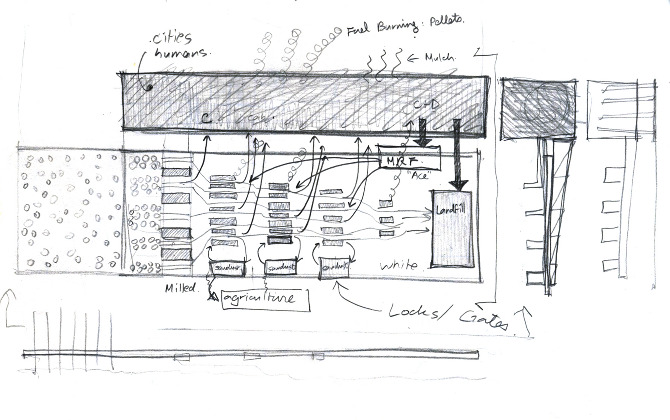 Fuel Burning: Pellets.
cities
humans.
Mulch.
C+D
C
MRF
"Ace"
Landfill
sawdust
sawdust
white
Milled.
agriculture
Locks/ Gates